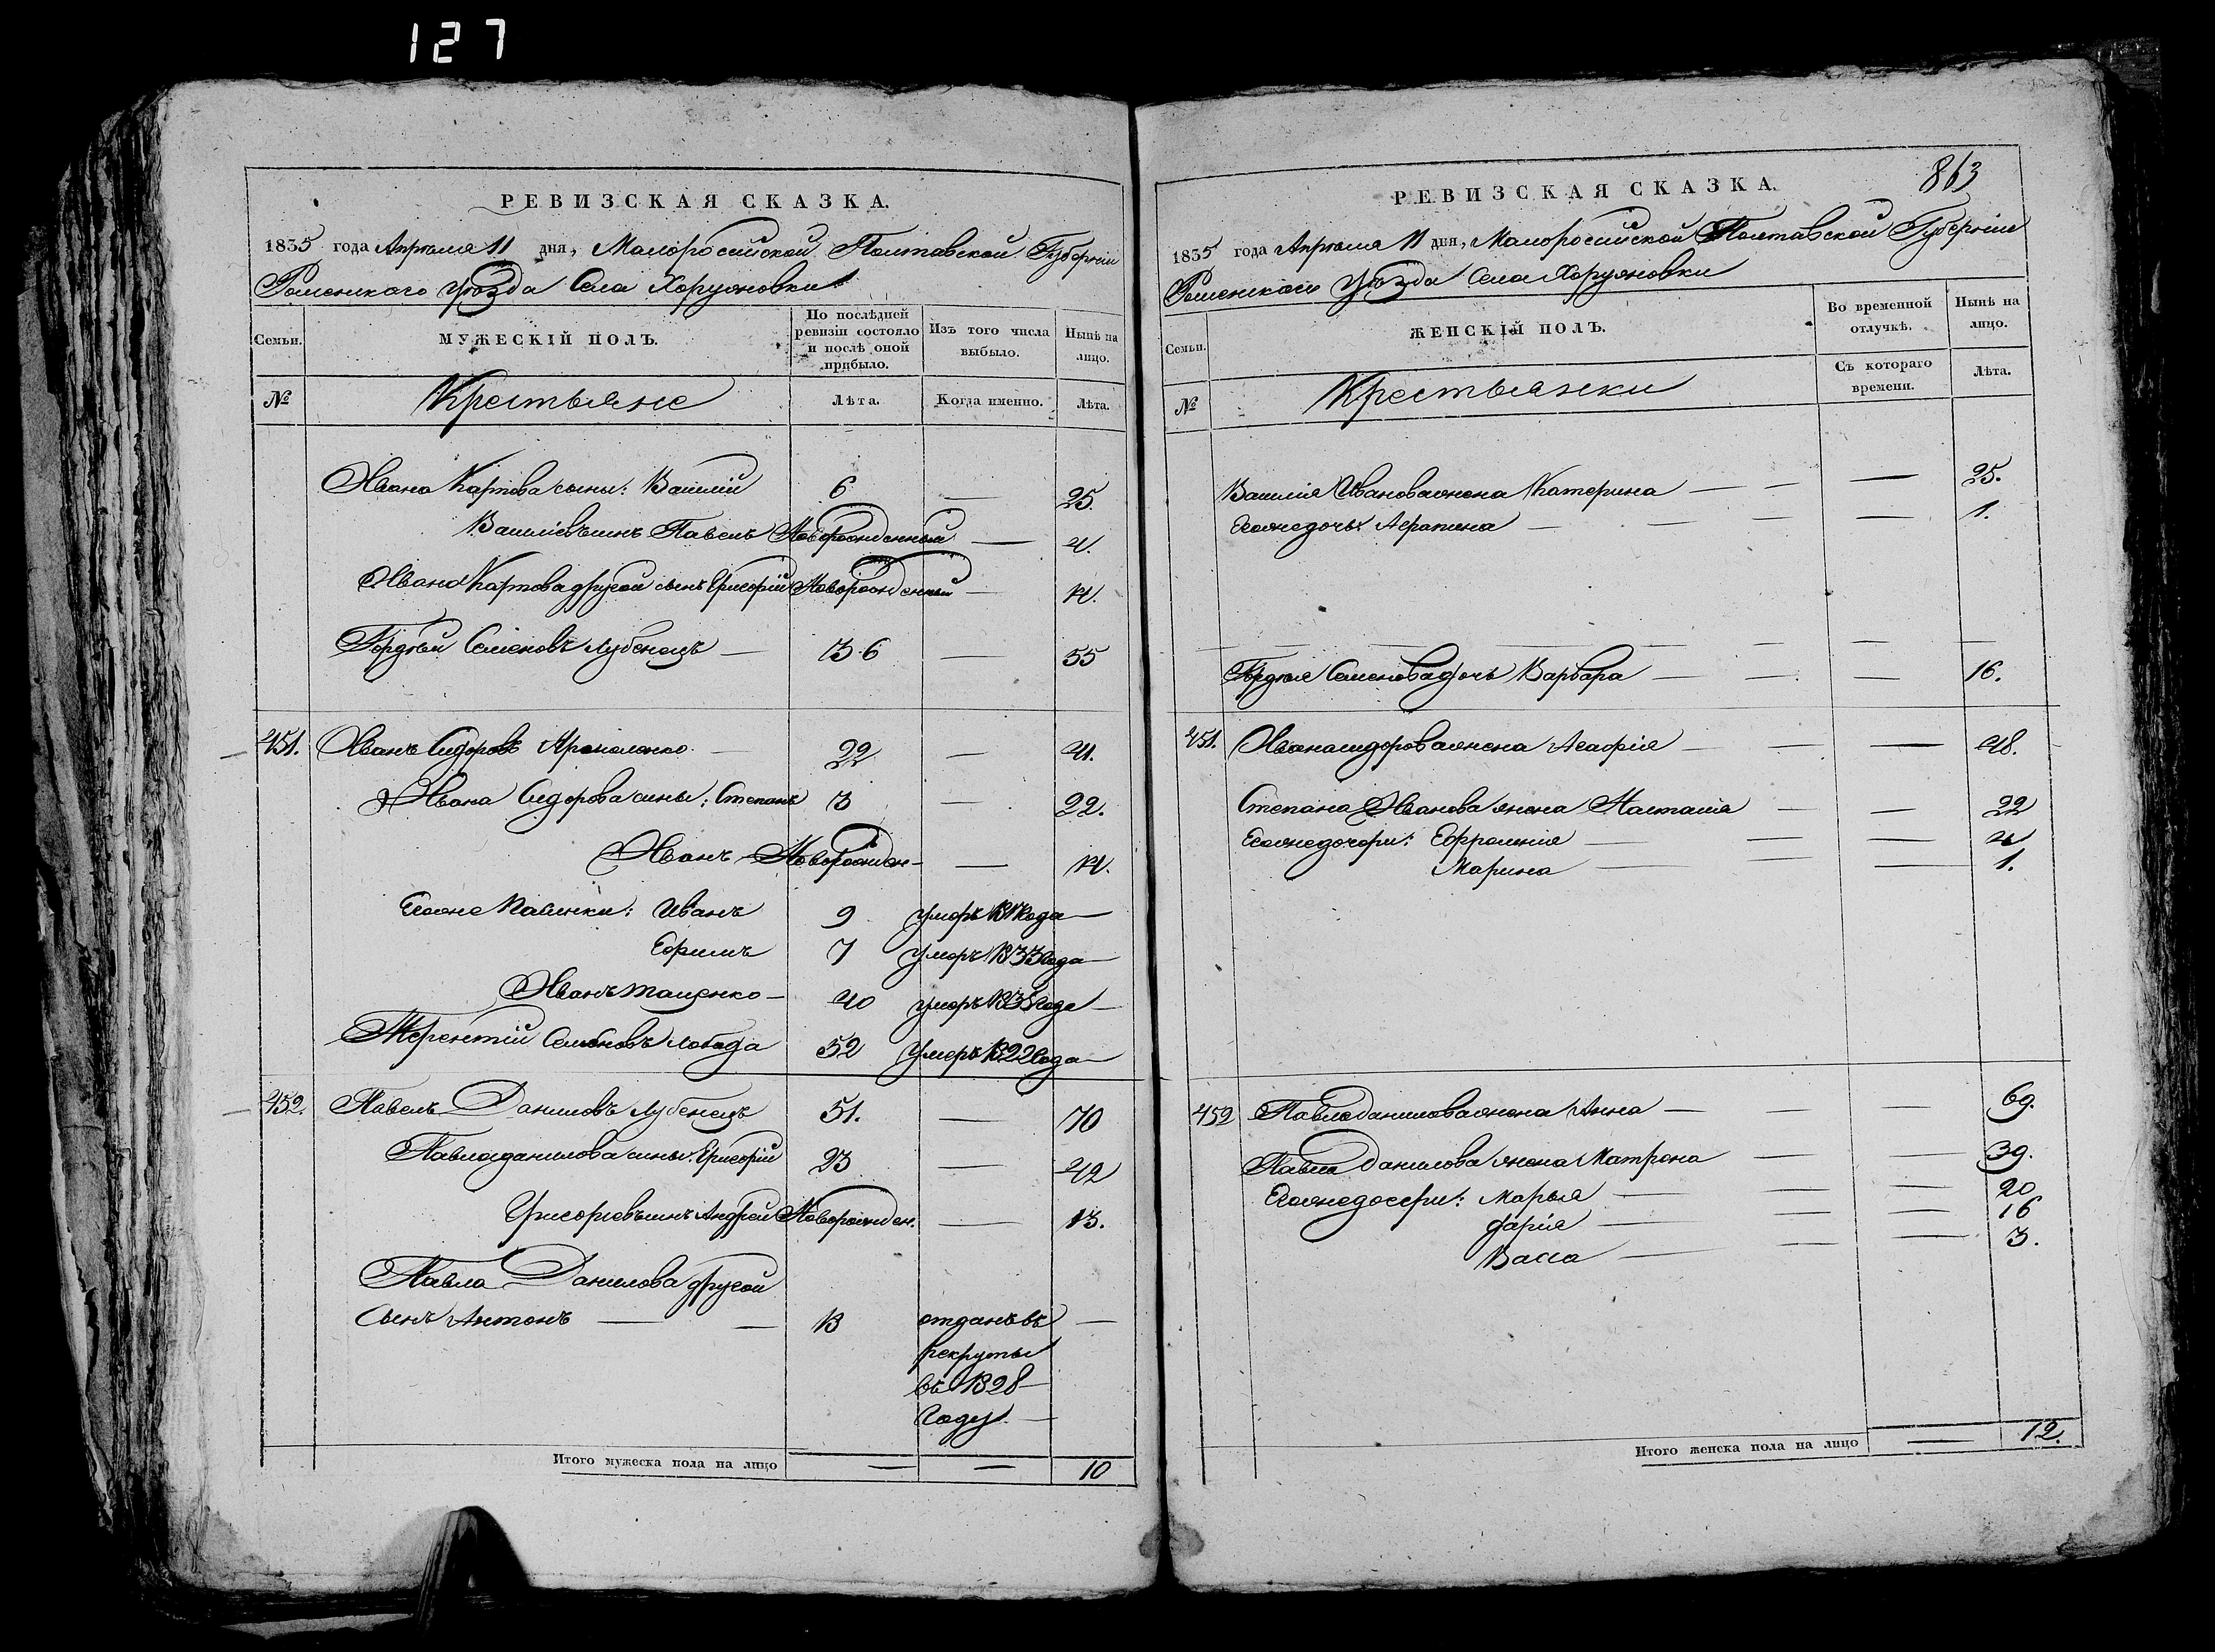 127
РЕВИЗСКАЯ СКАЗКА.
1835 года Апреля 11 дня, Малоросiйской Полтавской Губернiи
Роменскаго уѣзда Села Хоружовки
Семьи.
МУЖЕСКIЙ ПОЛЪ.
По послѣдней ревизiи состояло и послѣ оной прибыло.
Изъ того числа выбыло.
Нынѣ на лицо.
№
Крестьяне
Лѣта.
Когда именно.
Лѣта.
Ивана Карпова сыны: Василiй 6 — 25.
Василiевъ сынъ Павелъ Новорожденный — 4.
Ивана Карпова другой сынъ Григорiй Новорожденный — 14.
Гордѣй Семеновъ Лубенецъ — 36 — 55
451. Иванъ Сидоровъ — 22 — 41.
Ивана Сидорова сыны: Степанъ 3 — 22.
Иванъ — Новорожден — — 14.
Егоже Пасинки: Иванъ 9 умеръ года —
Ефимъ 7 умеръ 1833 года —
Иванъ — 40 умеръ года —
Терентiй Семеновъ Лобода 52 умеръ 1822 года —
452. Павелъ Даниловъ Лубенецъ 51. — 70
Павла Данилова сины: Григорiй 23 — 42
Григорiевъ сынъ Андрей Новорожден. — 13.
Павла Данилова другой
сынъ Антонъ — — 13 отданъ въ —
рекруты
въ 1828
году —
Итого мужеска пола на лицо — — 10
863
РЕВИЗСКАЯ СКАЗКА.
1835 года Апреля 11 дня, Малоросiйской Полтавской Губернiи
Роменскаго уѣзда Села Хоружовки
Семьи.
ЖЕНСКIЙ ПОЛЪ.
Во временной отлучкѣ.
Нынѣ на лицо.
№
Крестьянки
Съ котораго времени.
Лѣта.
Василiя Иванова жена Катерина — — — 25.
Егоже дочь Агрипина — — — — 1.
Гордѣя Семенова дочь Варвара — — — 16.
451. Ивана Сидорова жена Агафiя — — — 48.
Степана Иванова жена Настасiя — — 22
Егоже дочери: Ефросинiя — — — 4
Марина — — — 1.
452 Павла Данилова жена Анна — — — 69.
Павла Данилова жена Матрена — — 39.
Егоже дочери: Марья — — — 20.
Дарiя — — — 16
Васса — — — 3.
Итого женска пола на лицо — 12.